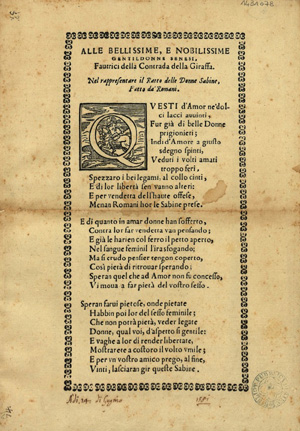 ALLE BELLISSIME, E NOBILISSIME
GENTILDONNE SENESI.
Fautrici della Contrada della Giraffa.
Nel rappresentare il Ratto delle Donne Sabine,
Fatto da' Romani.
QVESTI d'Amor ne' dolci
lacci avuinti,
Fur già di belle Donne
prigionieri;
Indi d'Amore a giusto
sdegno spinti,
Veduti i volti amati
troppo feri,
Spezzaro i bei legami, al collo cinti,
E di lor libertà sen vanno alteri:
E per vendetta dell'haute offese,
Menan Romani hor le Sabine prese.
E di quanto in amar donne han sofferto,
Contra lor far vendetta van pensando;
E già le harien col ferro il petto aperto,
Nel sangue feminil l'ira sfogando;
Ma si crudo pensier tengon coperto,
Così pietà di ritrouar sperando:
Speran quel che ad Amor non fù concesso,
Vi moua a far pietà del vostro sesso.
Speran farui pietose, onde pietate
Habbin poi lor del sesso feminile;
Che non potrà pietà, veder legate
Donne, qual voi, d'aspetto sì gentile:
E vaghe a lor di render libertate,
Mostrarete a costoro il volto vmile;
E per vn vostro amico prego, al fine,
Vinti, lasciaran gir queste Sabine.